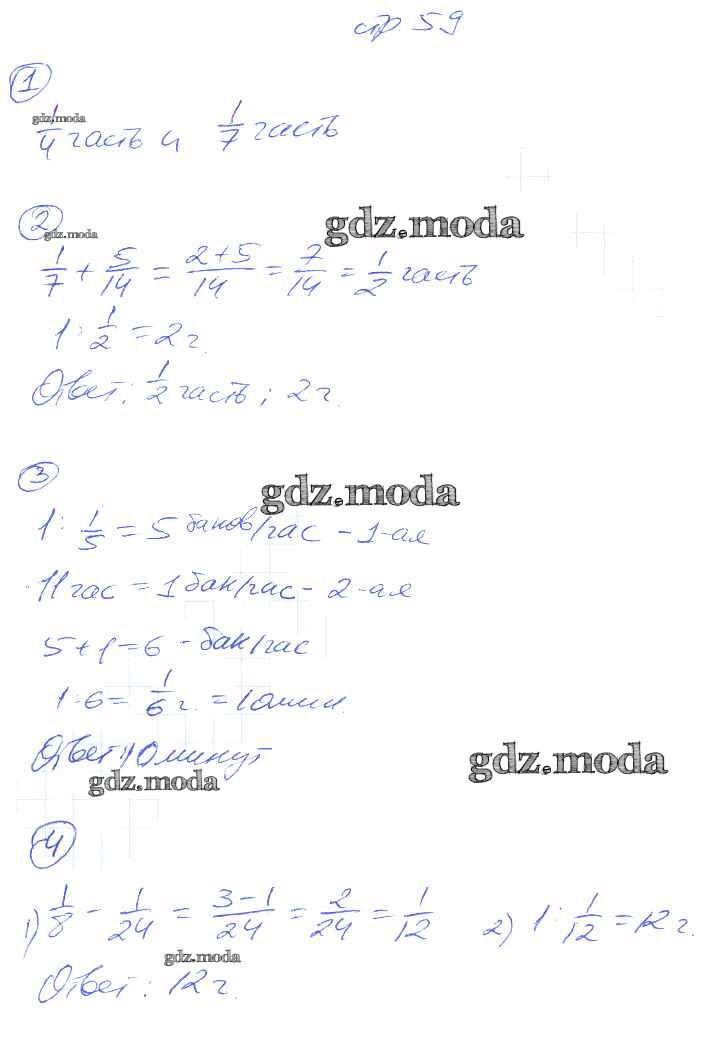 стр 59
1
gdz.moda
1/4 часть и 1/7 часть
2
gdz.moda
gdz.moda
1/7 + 5/14 = 2+5/14 = 7/14 = 1/2 часть
1 : 1/2 = 2 ч.
Ответ: 1/2 часть; 2 ч.
3
gdz.moda
1 : 1/5 = 5 баков/час - 1-ая
1/1 час = 1 бак/час - 2-ая
5+1=6 - бак/час
1:6= 1/6 ч. = 10 мин.
Ответ: 10 минут
gdz.moda
gdz.moda
4
1) 1/8 - 1/24 = 3-1/24 = 2/24 = 1/12 2) 1 : 1/12 = 12 ч.
gdz.moda
Ответ: 12 ч.